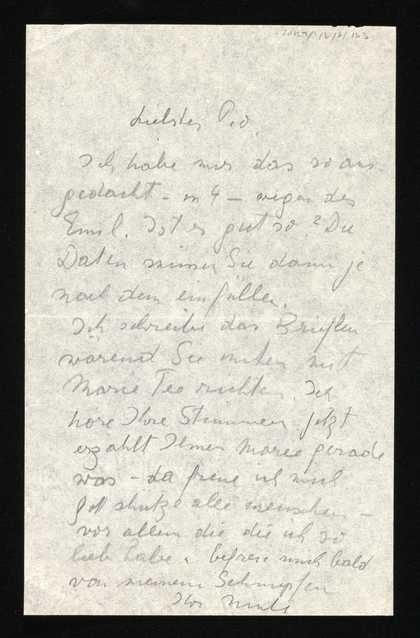 Liebster Pio,
Ich habe mir das so aus
gedacht - in 4 - wegen des
Emil. Ist es gut so? Die
Daten müssen Sie dann je
nach dem einfüllen.
Ich schreibe das Brieflen
wärend Sie unten mit
Marie Tee trinken. Ich
höre Ihre Stimmen jetzt
erzählt Ihnen Marie gerade
was - da freue ich mich
gott shütze alle menschen -
vor allem die die ich so
lieb habe u. befreie mich bald
von meinem Schnupfen
Ihr